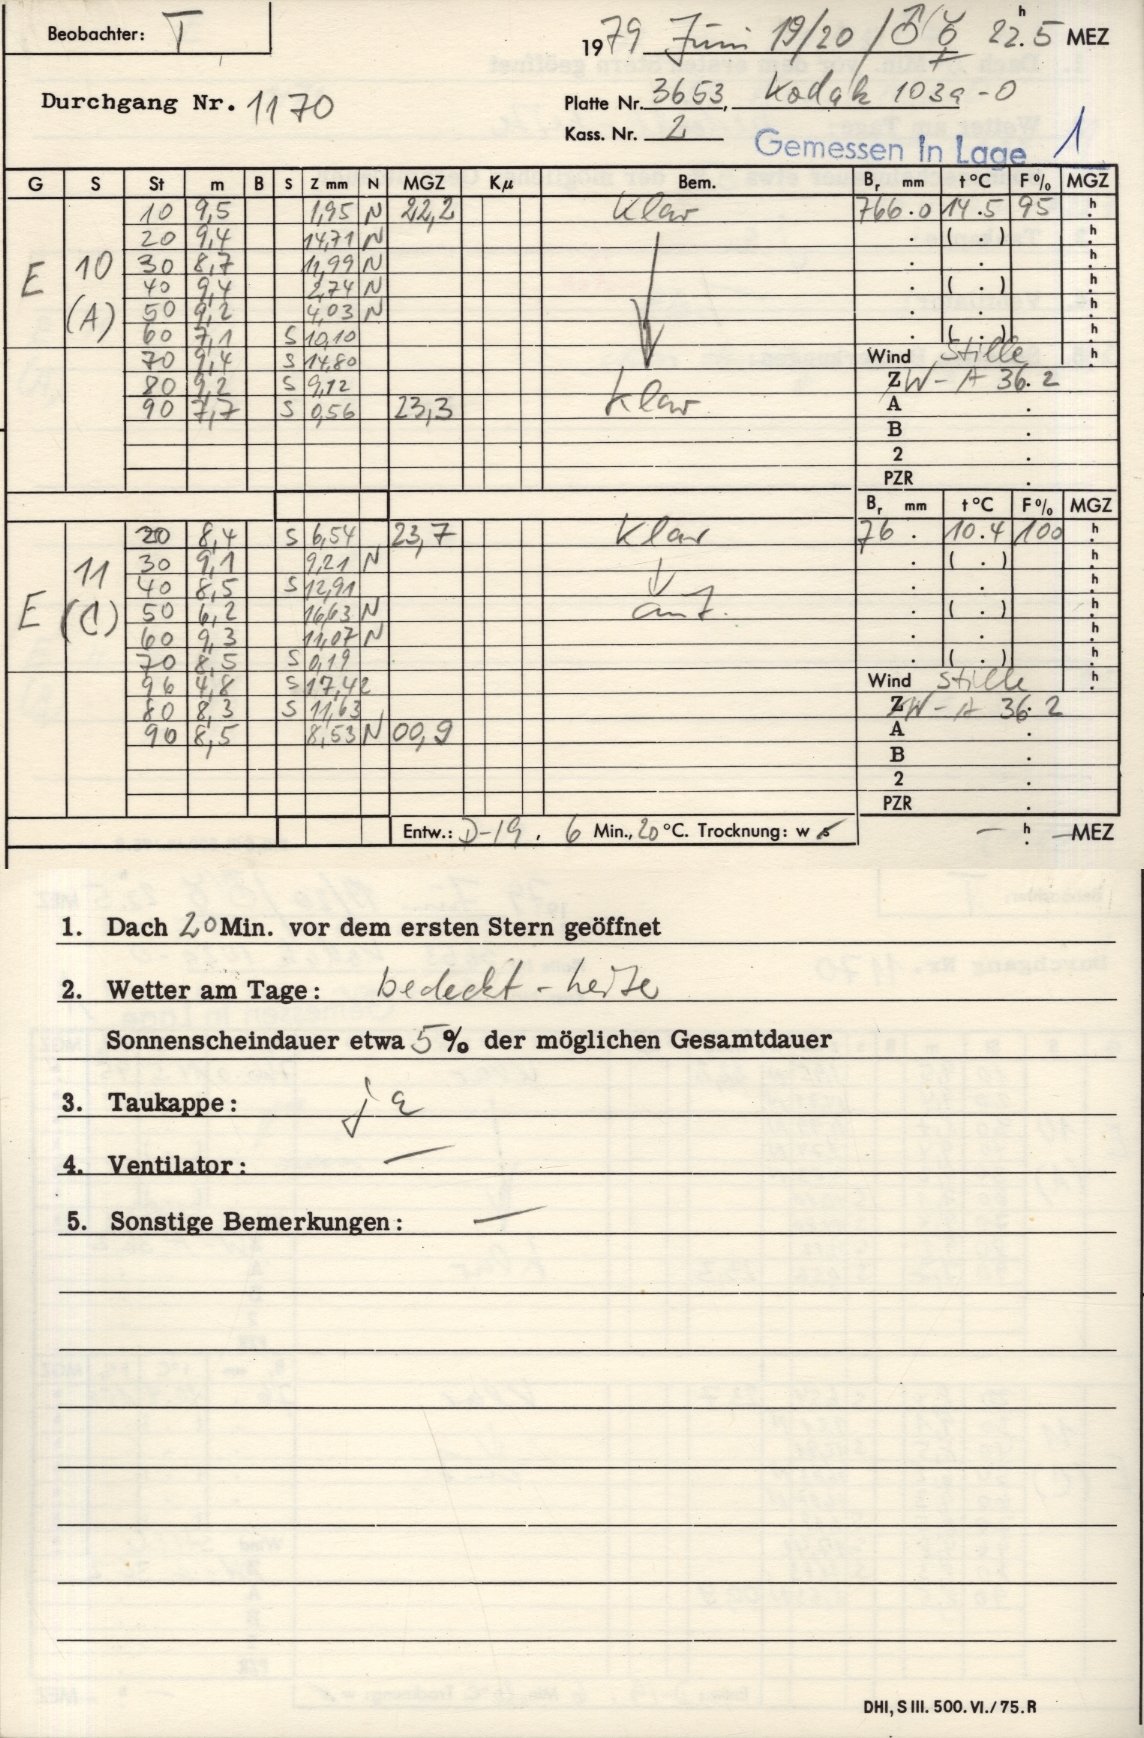 Beobachter: T
1979 Juni 19/20 / ♂/☿ 22.5 h MEZ
Durchgang Nr. 1170
Platte Nr. 3653, Kodak 103a-O
Kass. Nr. 2
Gemessen In Lage 1
G S St m B S Z mm N MGZ Kμ Bem. Br mm t °C F % MGZ
10 9,5 1,95 N 22,2 klar 766.0 14.5 95 h
20 9,4 14,71 N . ( . ) h
30 8,7 11,99 N . . h
E 10 (A)
40 9,4 2,74 N . ( . ) h
50 9,2 4,03 N . . h
60 7,1 S 10,10 . ( . ) h
70 9,4 S 14,80 Wind Stille h
80 9,2 S 9,12 Z W-A 36.2
90 7,7 S 0,56 23,3 klar A .
B .
2 .
PZR .
Br mm t °C F % MGZ
20 8,4 S 6,54 23,7 klar 76 . 10.4 100 h
30 9,1 9,21 N . ( . ) h
E 11 (C)
40 8,5 S 12,91 . . h
50 6,2 16,63 N . ( . ) h
60 9,3 11,07 N . . h
70 8,5 S 0,19 . ( . ) h
96 4,8 S 17,42 Wind Stille h
80 8,3 S 11,63 Z W-A 36.2
90 8,5 8,53 N 00,9 A .
B .
2 .
PZR .
Entw.: D-19. 6 Min., 20 °C. Trocknung: w s — h — MEZ
1. Dach 20 Min. vor dem ersten Stern geöffnet
2. Wetter am Tage: bedeckt -
Sonnenscheindauer etwa 5 % der möglichen Gesamtdauer
3. Taukappe: ja
4. Ventilator: —
5. Sonstige Bemerkungen: —
DHI, S III. 500. VI./75. R